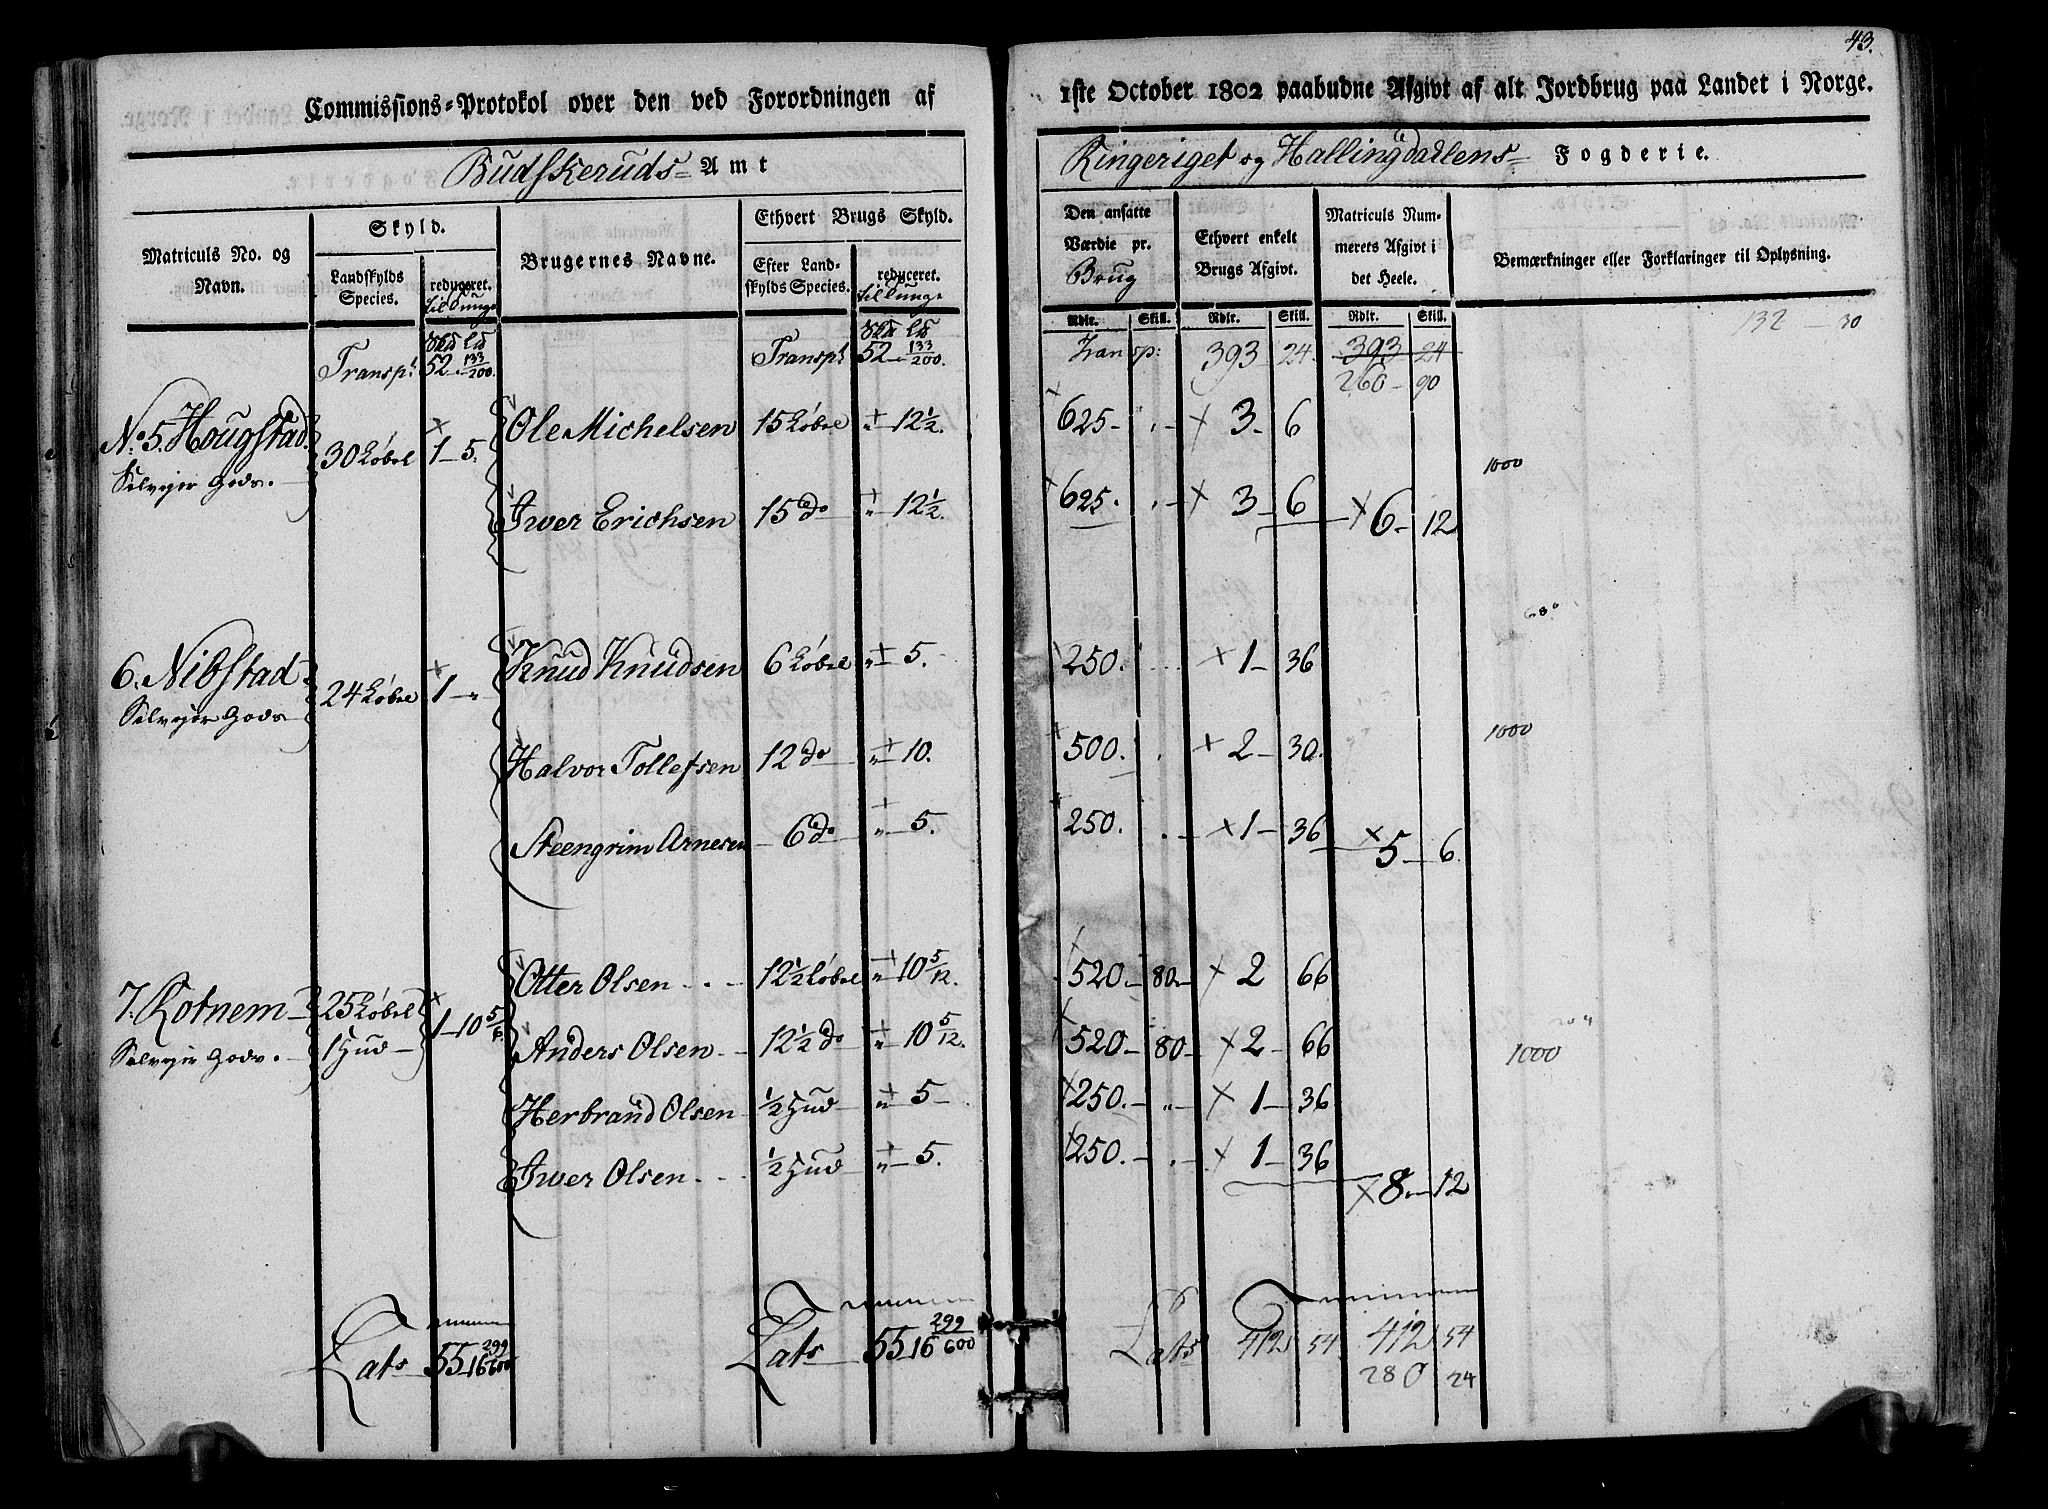 43.
Commissions-Protokol over den ved Forordningen af 1ste October 1802 paabudne Afgivt af alt Jordbrug paa Landet i Norge.
Budskeruds Amt
Ringeriget og Hallingdalens Fogderie.
Matriculs No. og Navn.
Skyld.
Landskylds Species.
reduceret.
til Tunge
Brugernes Navne.
Ethvert Brugs Skyld.
Efter Landskylds Species.
reduceret.
til Tunge
Den ansatte Værdie pr. Brug
Rdlr. Skill.
Ethvert enkelt Brugs Afgivt.
Rdlr. Skill.
Matriculs Nummerets Afgivt i det Heele.
Rdlr. Skill.
Bemærkninger eller Forklaringer til Oplysning.
132 — 30
Transpt. 52 133/200. Transpt 52 133/200. Transp: 393 24. 393 24
260 — 90
No. 5. Hougstad 30 Løbel 1 — 5. Ole Michelsen 15 Løbel " 12½. 625 — . — × 3 — 6
Selveier Gods. 1000
Iwer Erichsen 15 do " 12½. 625. . — × 3 — 6 × 6 — 12
6. Nibstad 24 Løbel 1 — " Knud Knudsen 6 Løbel " 5. 250. × 1 — 36
Selveier Gods
Halvor Tollefsen 12 do " 10. 500. . × 2 — 30. 1000
Steengrim Arnesen — 6 do " — 5. 250. . — × 1 — 36 × 5 — 6.
7. Rotnem 25 Løbel 1 — 10 5/6 Otter Olsen 12½ Løbel " 10 5/12. 520 — 80 — × 2 66
Selveier Gods. 1 Hud Anders Olsen 12½ do " 10 5/12. 520 — 80 — × 2 — 66 1000
Herbrand Olsen ½ Hud " 5 — 250. — " — × 1 — 36
Iwer Olsen ½ Hud " 5. 250. — . — × 1 — 36 × 8 — 12
Lats 55 — 16 299/600 Lats 55 16 299/600 Lats 412 54 412 54
280 24